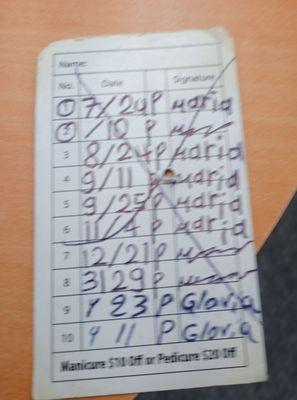 Name:
No. Date Signature
1 7/24 P Maria
2 /10 P
3 8/24 P Maria
4 9/11 P Maria
5 9/25 P Maria
6 11/4 P Maria
7 12/21 P
8 3/29 P
9 4 23 P Gloria
10 4 11 P Gloria
Manicure $10 Off or Pedicure $20 Off